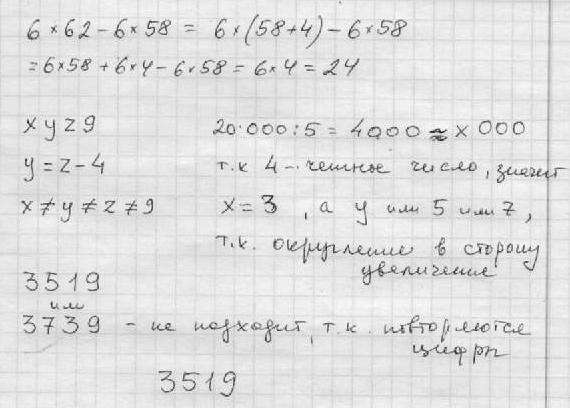 6×62-6×58 = 6×(58+4)-6×58
=6×58+6×4-6×58=6×4=24
x y z 9
20·000:5=4000≈x000
y=z-4
т.к 4-четное число, значит
x≠y≠z≠9
x=3, а y или 5 или 7,
т.к. округление в сторону
увеличение
3519
или
3739 - не подходит, т.к. повторяются
цифры
3519